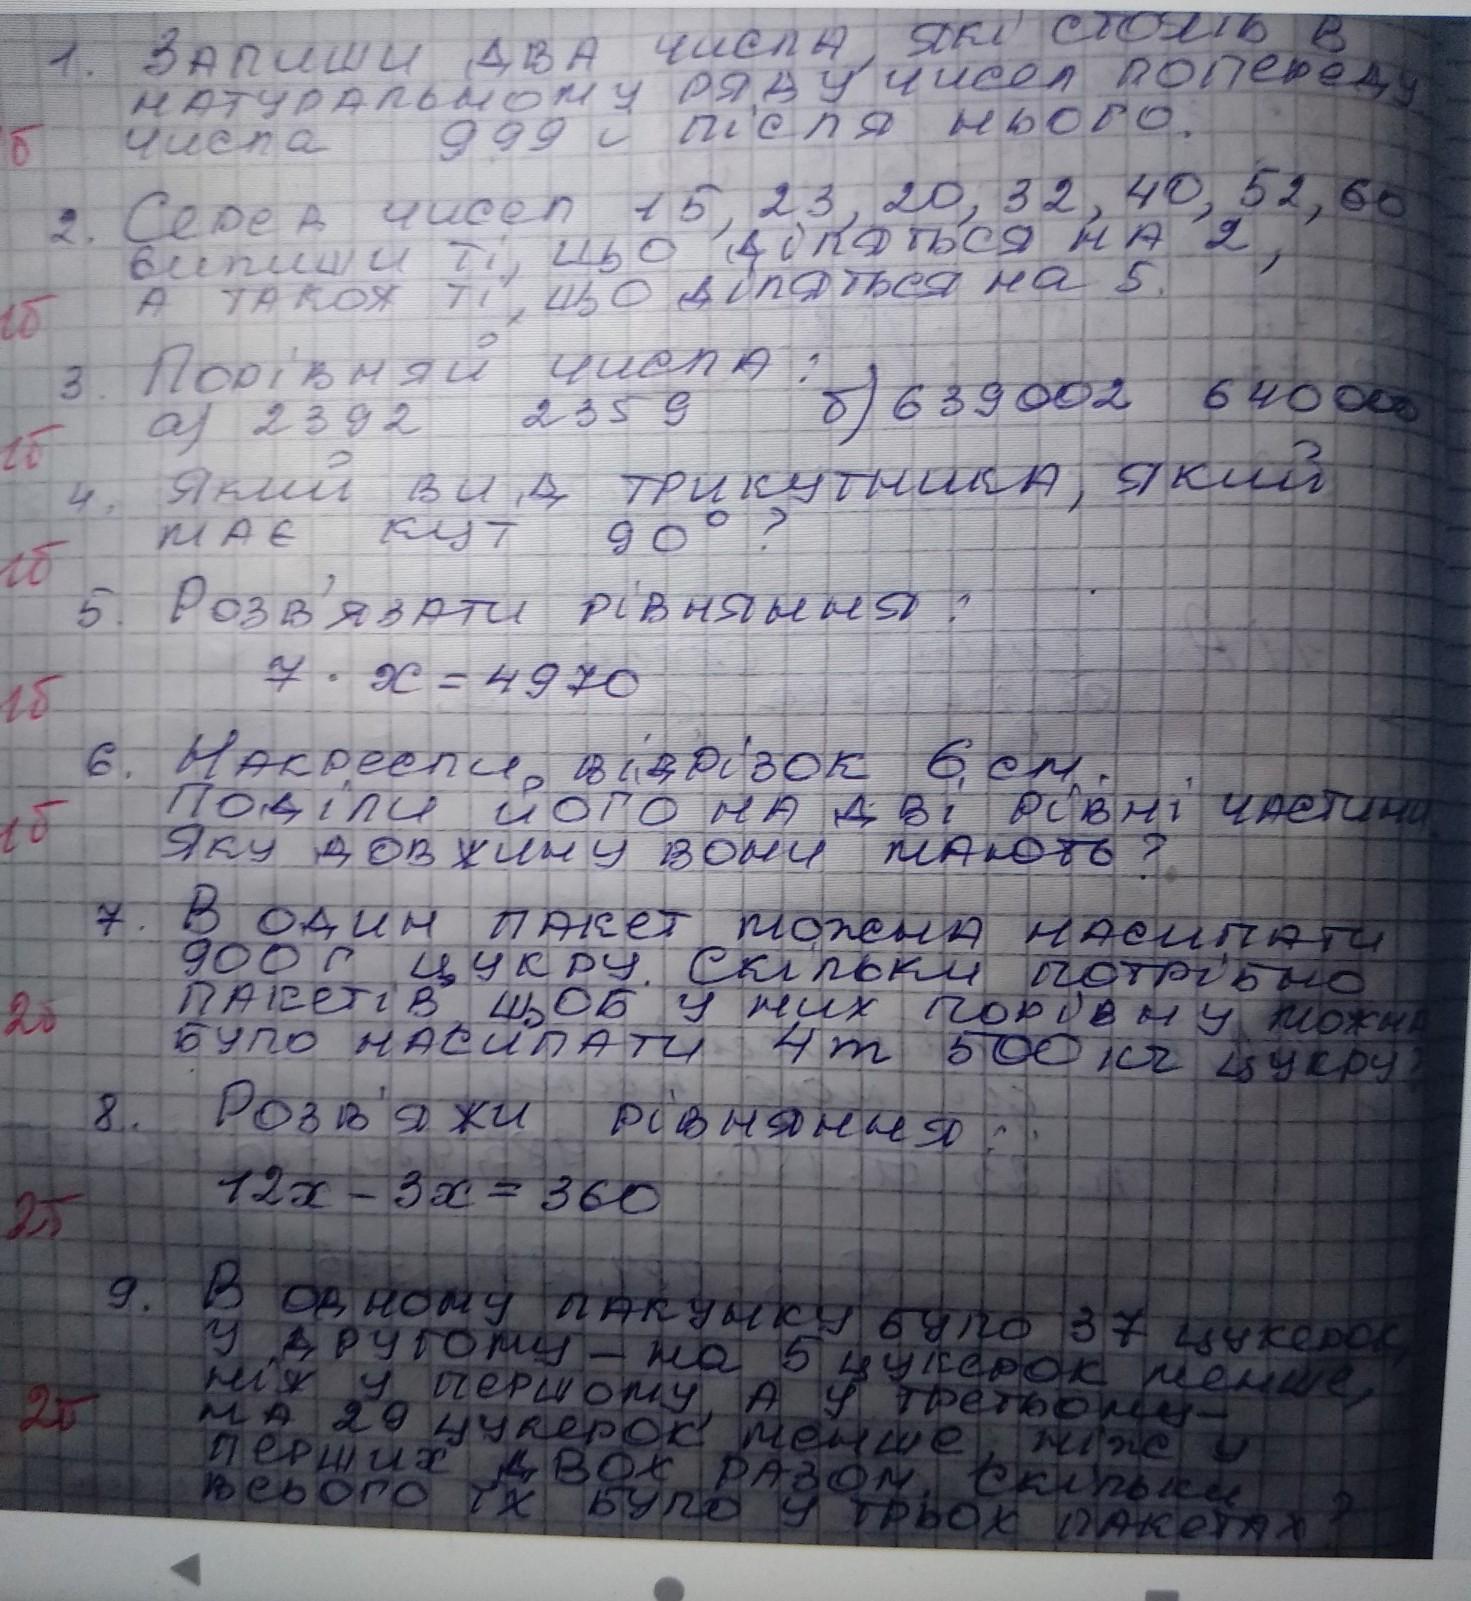 1. Запиши два числа, які стоять в
натуральному ряду чисел попереду
числа 999 і після нього.
1б
2. Серед чисел 15, 23, 20, 32, 40, 52, 60
випиши ті, що діляться на 2,
а також ті, що діляться на 5.
1б
3. Порівняй числа:
а) 2392 2359 б) 639002 640000
1б
4. Який вид трикутника, який
має кут 90°?
1б
5. Розв'язати рівняння:
7 · x = 4970
1б
6. Накресли відрізок 6 см.
Поділи його на дві рівні частини
1б
Яку довжину вони мають?
7. В один пакет можна насипати
900 г цукру. Скільки потрібно
2б
пакетів, щоб у них порівну можна
було насипати 4т 500 кг цукру?
8. Розв'яжи рівняння:
12x - 3x = 360
2б
9. В одному пакунку було 37 цукерок,
у другому - на 5 цукерок менше,
ніж у першому, а у третьому -
2б
на 29 цукерок менше, ніж у
перших двох разом. Скільки
всього їх було у трьох пакетах?